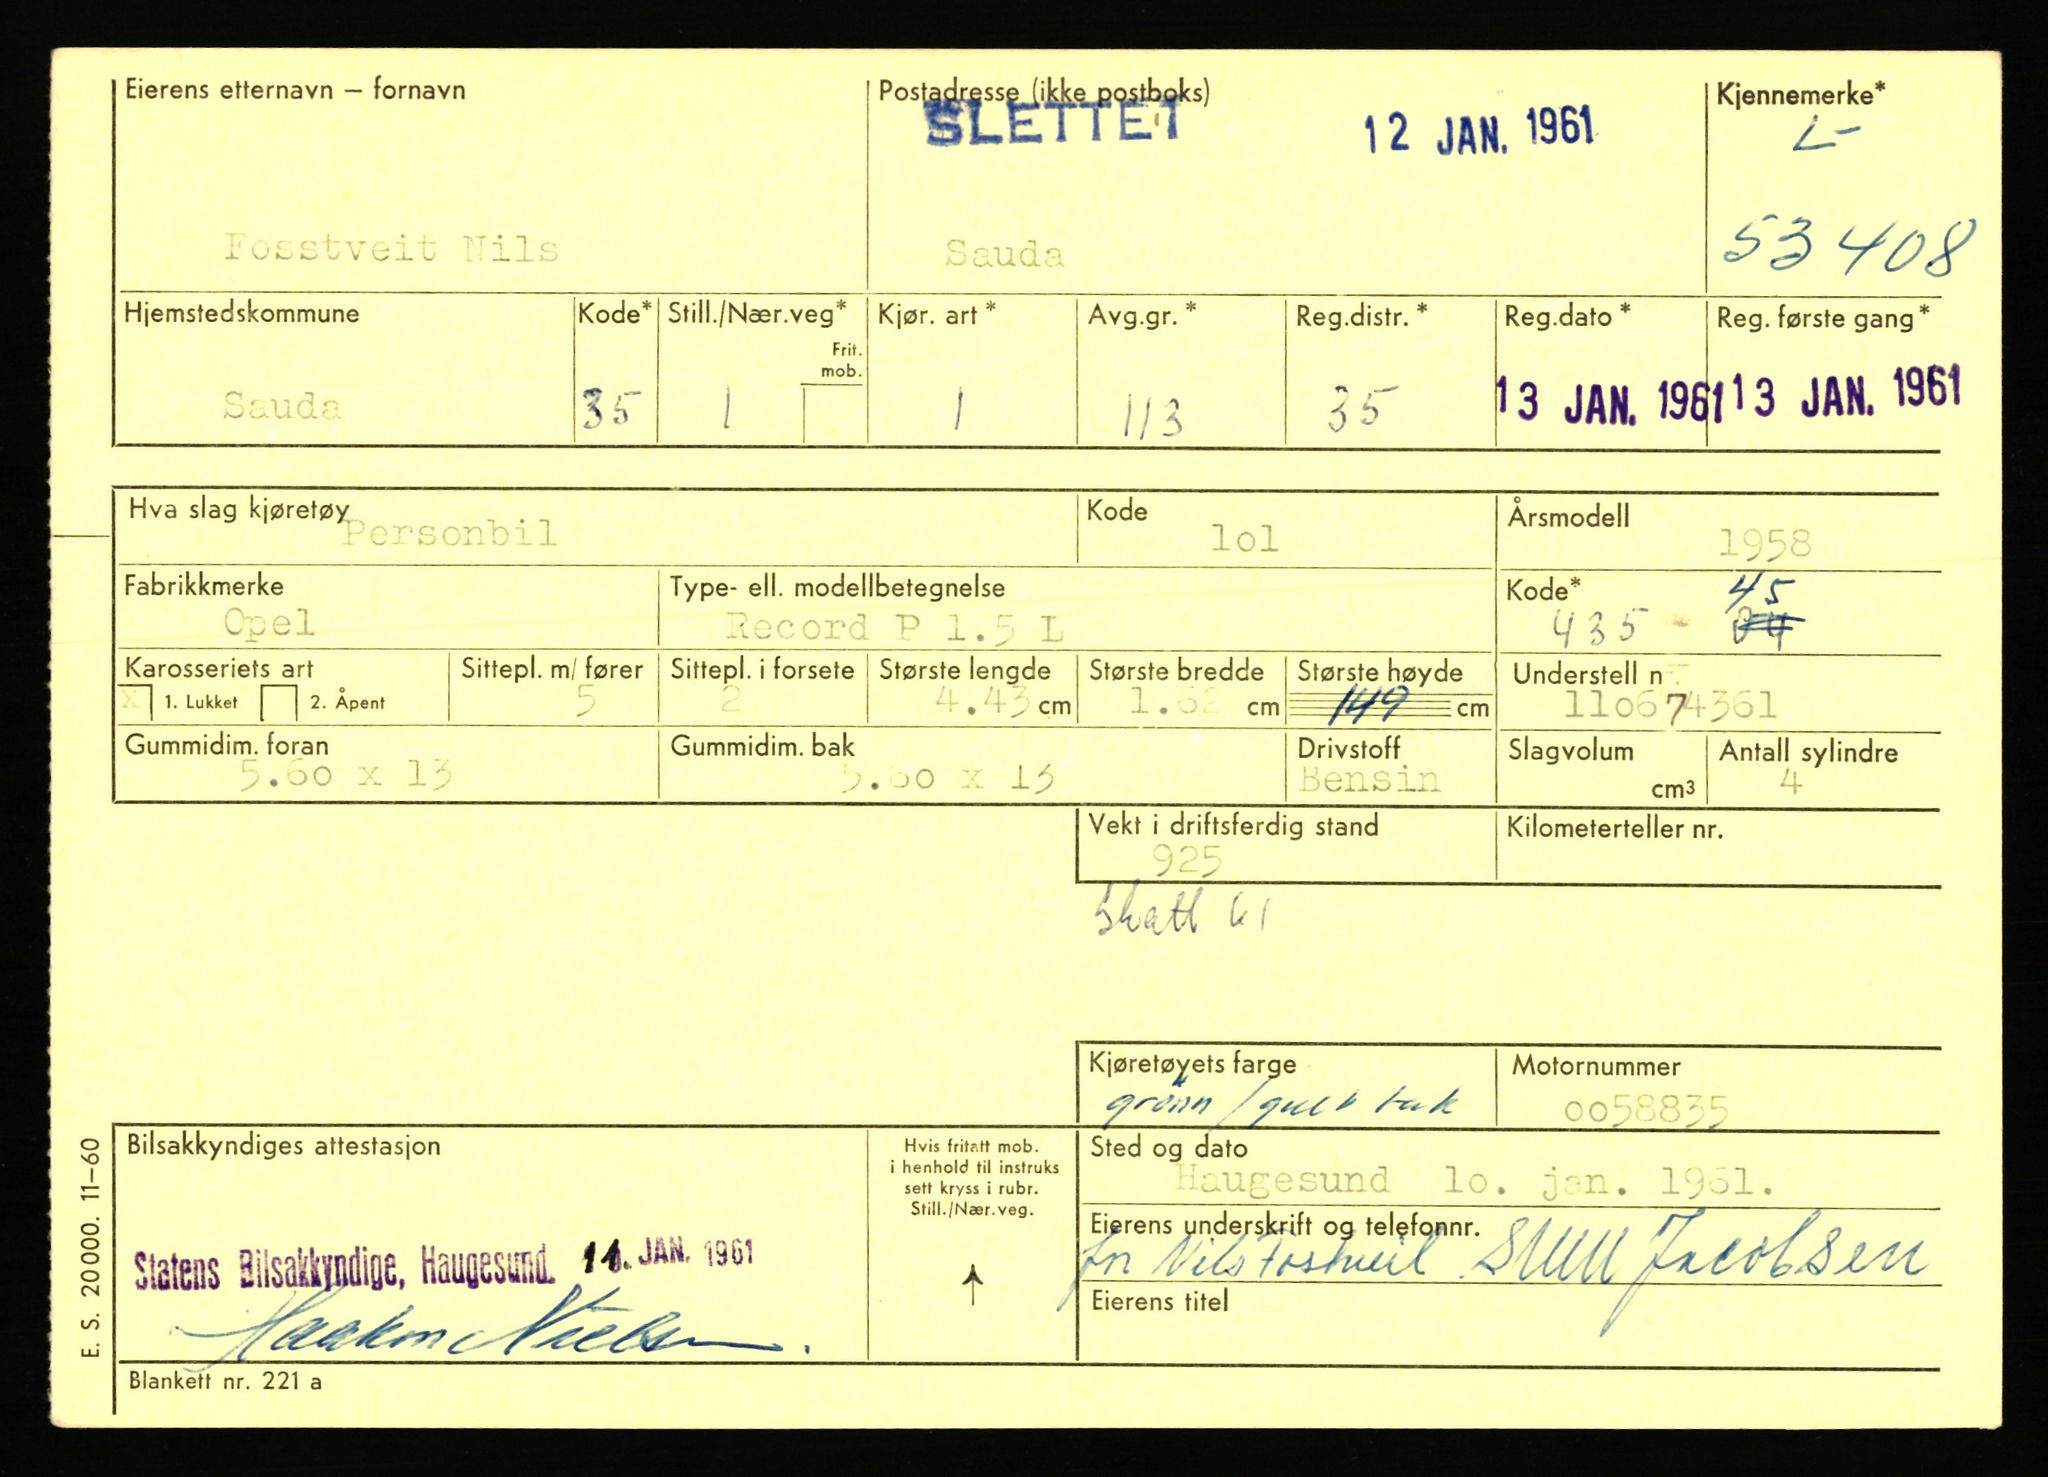 Eierens etternavn – fornavn Postadresse (ikke postboks) Kjennemerke*
SLETTET 12 JAN. 1961 L-
Fosstveit Nils Sauda 53408
Hjemstedskommune Kode* Still./Nær.veg* Kjør. art * Avg.gr. * Reg.distr. * Reg.dato * Reg. første gang *
Frit.
mob.
Sauda 35 1 1 113 35 13 JAN. 1961 13 JAN. 1961
Hva slag kjøretøy Kode Årsmodell
Personbil lol 1958
Fabrikkmerke Type- ell. modellbetegnelse Kode* 45
Opel Record P 1.5 L 435 - 04
Karosseriets art Sittepl. m/ fører Sittepl. i forsete Største lengde Største bredde Største høyde Understell nr
x 1. Lukket 2. Åpent 5 2 4.43 cm 1.62 cm 149 cm 110674361
Gummidim. foran Gummidim. bak Drivstoff Slagvolum Antall sylindre
5.60 x 13 5.60 x 13 Bensin cm3 4
Vekt i driftsferdig stand Kilometerteller nr.
925
Skatt 61
Kjøretøyets farge Motornummer
grønn / gult tak oo58835
Bilsakkyndiges attestasjon Hvis fritatt mob. Sted og dato
i henhold til instruks
sett kryss i rubr.
Still./Nær.veg.
Haugesund lo. jan. 1961.
Eierens underskrift og telefonnr.
Statens Bilsakkyndige, Haugesund. 11. JAN. 1961 for Nils Fostveit Jacobsen
Haakon Nielsen.
Eierens titel
Blankett nr. 221 a
E. S. 20000. 11–60